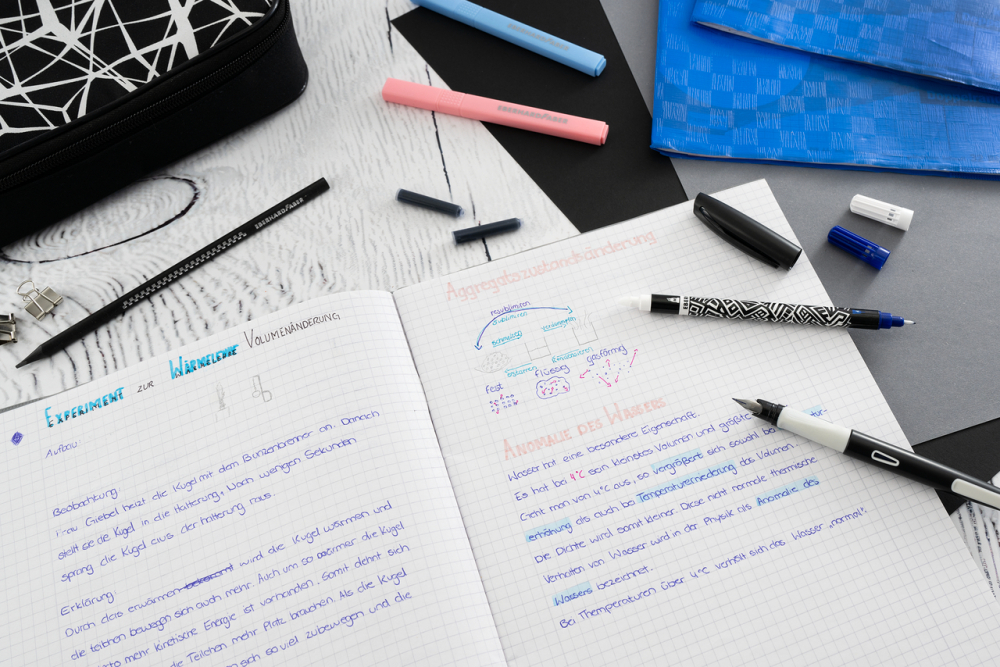 EBERHARD FABER
EBERHARD FABER
EXPERIMENT ZUR WÄRMELEHRE VOLUMENÄNDERUNG
Aufbau
Beobachtung
Frau Giebel heizt die Kugel mit dem Bunzenbrenner an. Danach
stellt sie die Kugel in die Halterung. Nach wenigen Sekunden
sprang die Kugel aus der Halterung raus.
Erklärung
Durch das erwärmen bekommt wird die Kugel wärmen und
die teilchen bewegen sich auch mehr. Auch um so wärmer die Kugel
mehr kinetische Energie ist vorhanden. Somit dehnt sich
die Teilchen mehr Platz brauchen. Als die Kugel
sich so viel zubewegen und die
Aggregatszustandsänderung
resublimieren
sublimieren
schmelzen
erstarren
fest
flüssig
gasförmig
ANOMALIE DES WASSERS
Wasser hat eine besondere Eigenschaft.
Es hat bei 4°C sein kleinstes Volumen und größte
Geht man von 4°C aus, so vergrößert sich sowohl bei
erhöhung als auch bei Temperaturerniederung das Volumen.
Die Dichte wird somit kleiner. Diese nicht normale thermische
Verhalten von Wasser wird in der Physik als Anomalie des
Wassers bezeichnet.
Bei Themperaturen über 4°C verhält sich das Wasser „normal".